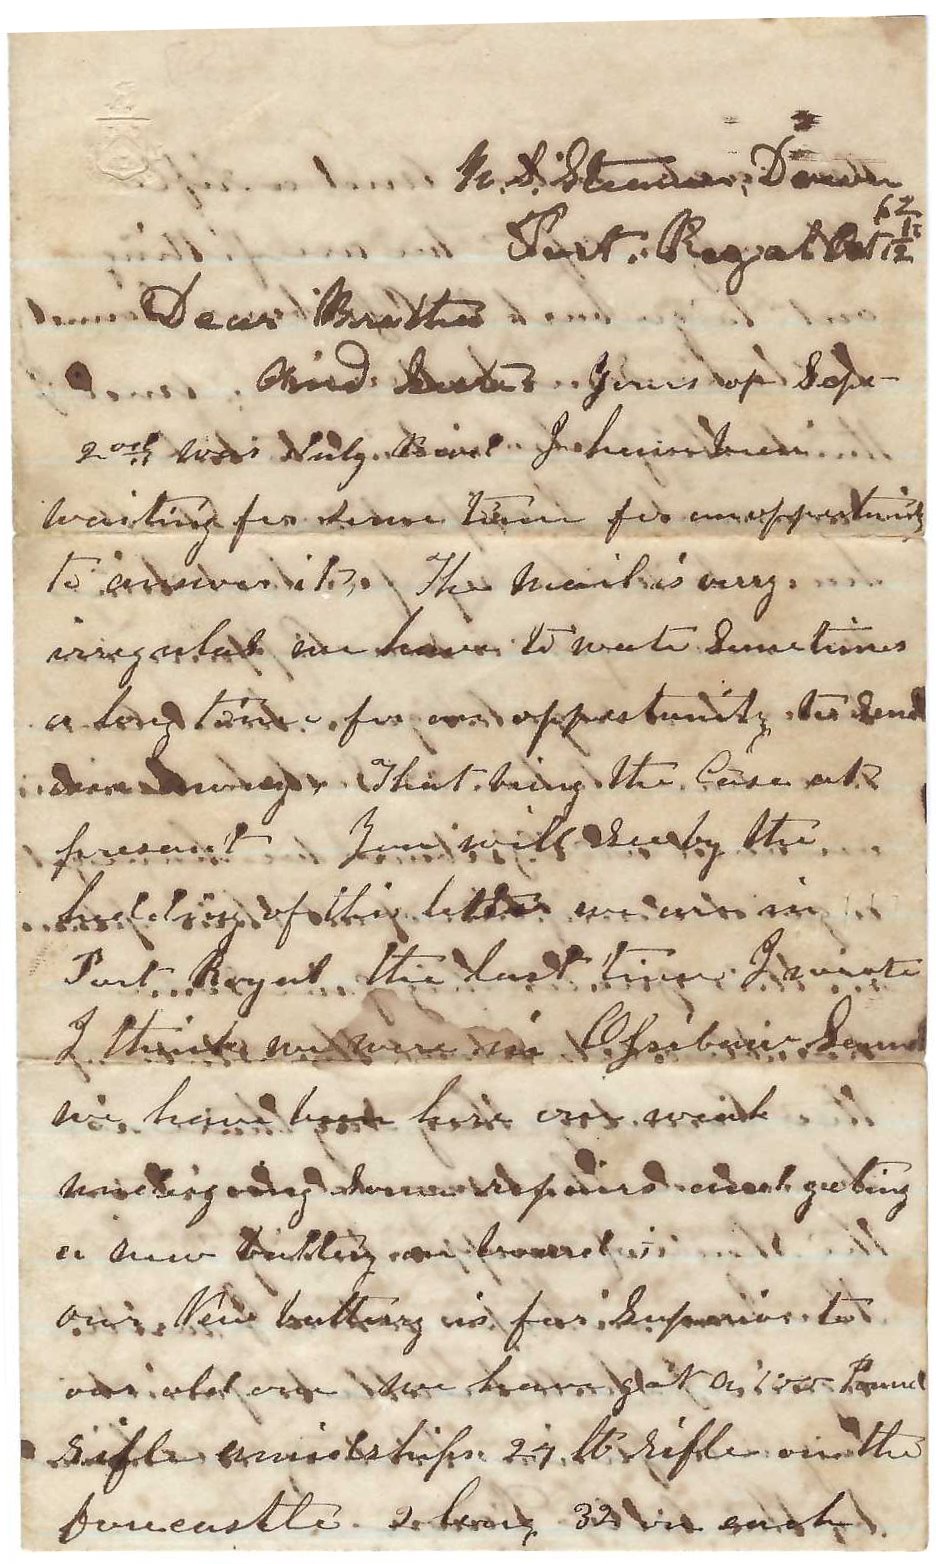 U.S. Steamer, Dawn
Port. Royal Oct 12
62
Dear Brother
And Sister Yours of Sept
2nd was duly Recvd I have been
waiting for some time for an oppertunity
to answer it. The Mail is very
irregular we have to wate Sometimes
a long time for an oppertunity to Send
away. That being the Case at
present You will See by the
hedding of this letter we are in
Port Royal the last time I wrote
I think we were in Ossibaw Sound
we have been here one week
undergoing Some repairs and geting
a new battery on board
our New battery is far Superior to
our old one we have got a 100 Pound
rifle amidships 24 lb rifle on the
forecastle 2 long 32 on each